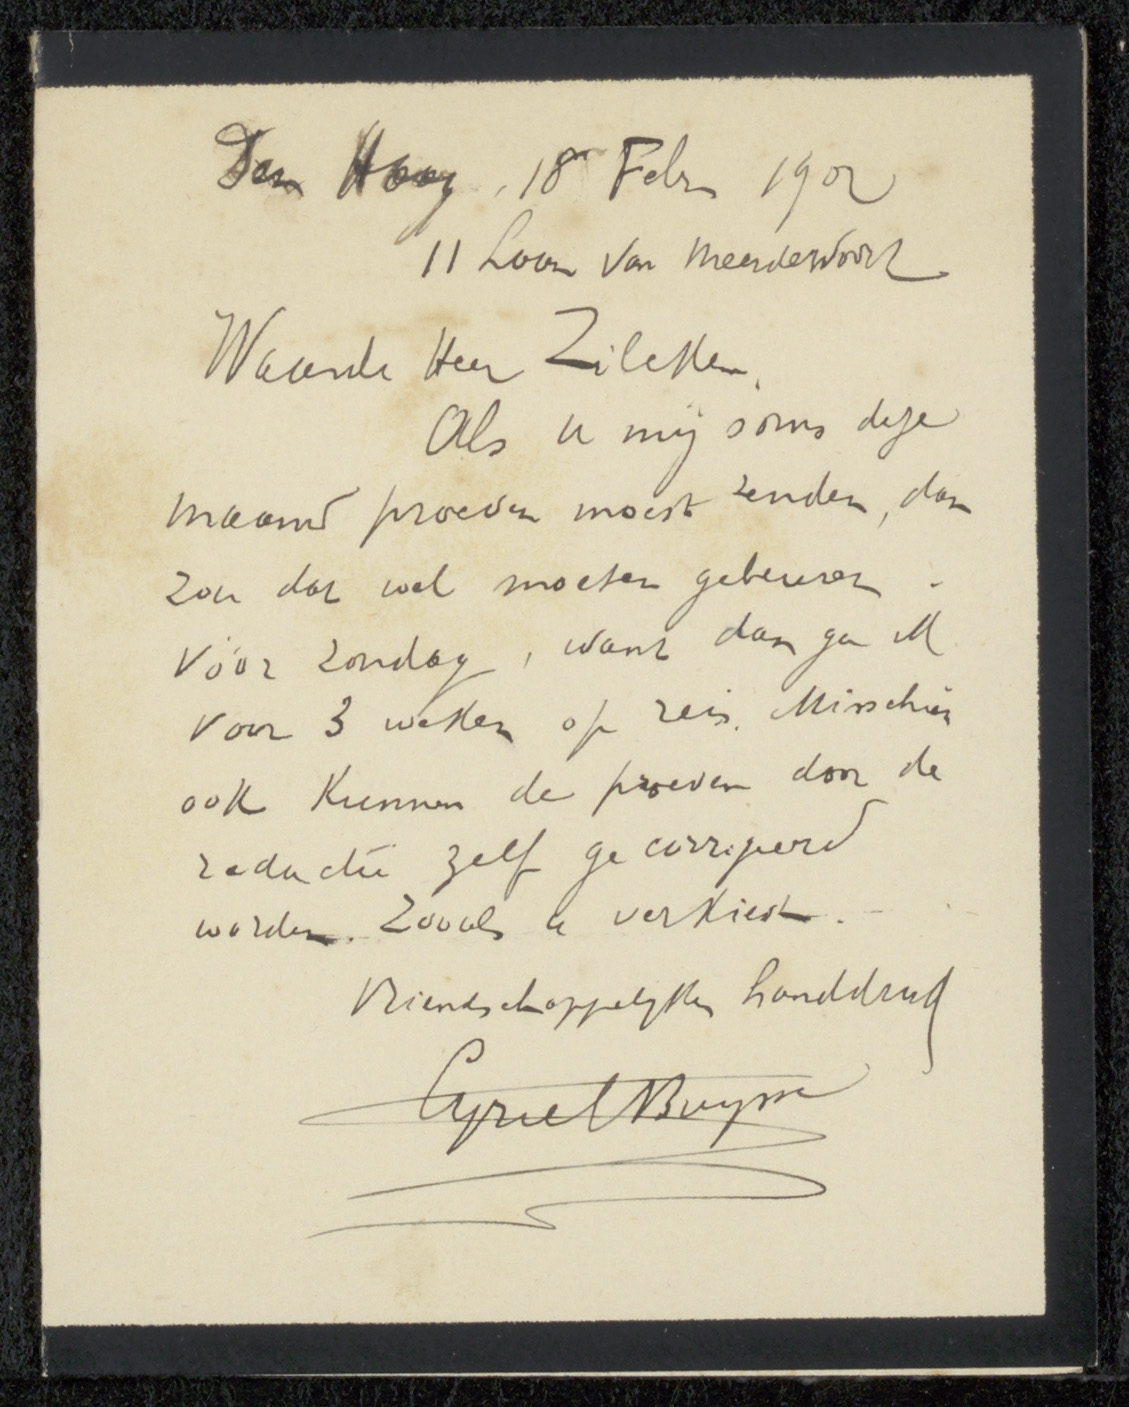 Den Haag, 18 Febr 1902
11 Laan van Meerdervoort
Waarde Heer Zilcken,
Als u mij soms deze
maand proeven moest zenden, dan
zou dat wel moeten gebeuren
vóór zondag, want dan ga ik
voor 3 weken op reis. Misschien
ook kunnen de proeven door de
redactie zelf gecorrigeerd
worden. Zooals u verkiest. –
Vriendschappelijken handdruk
Cyriel Buysse